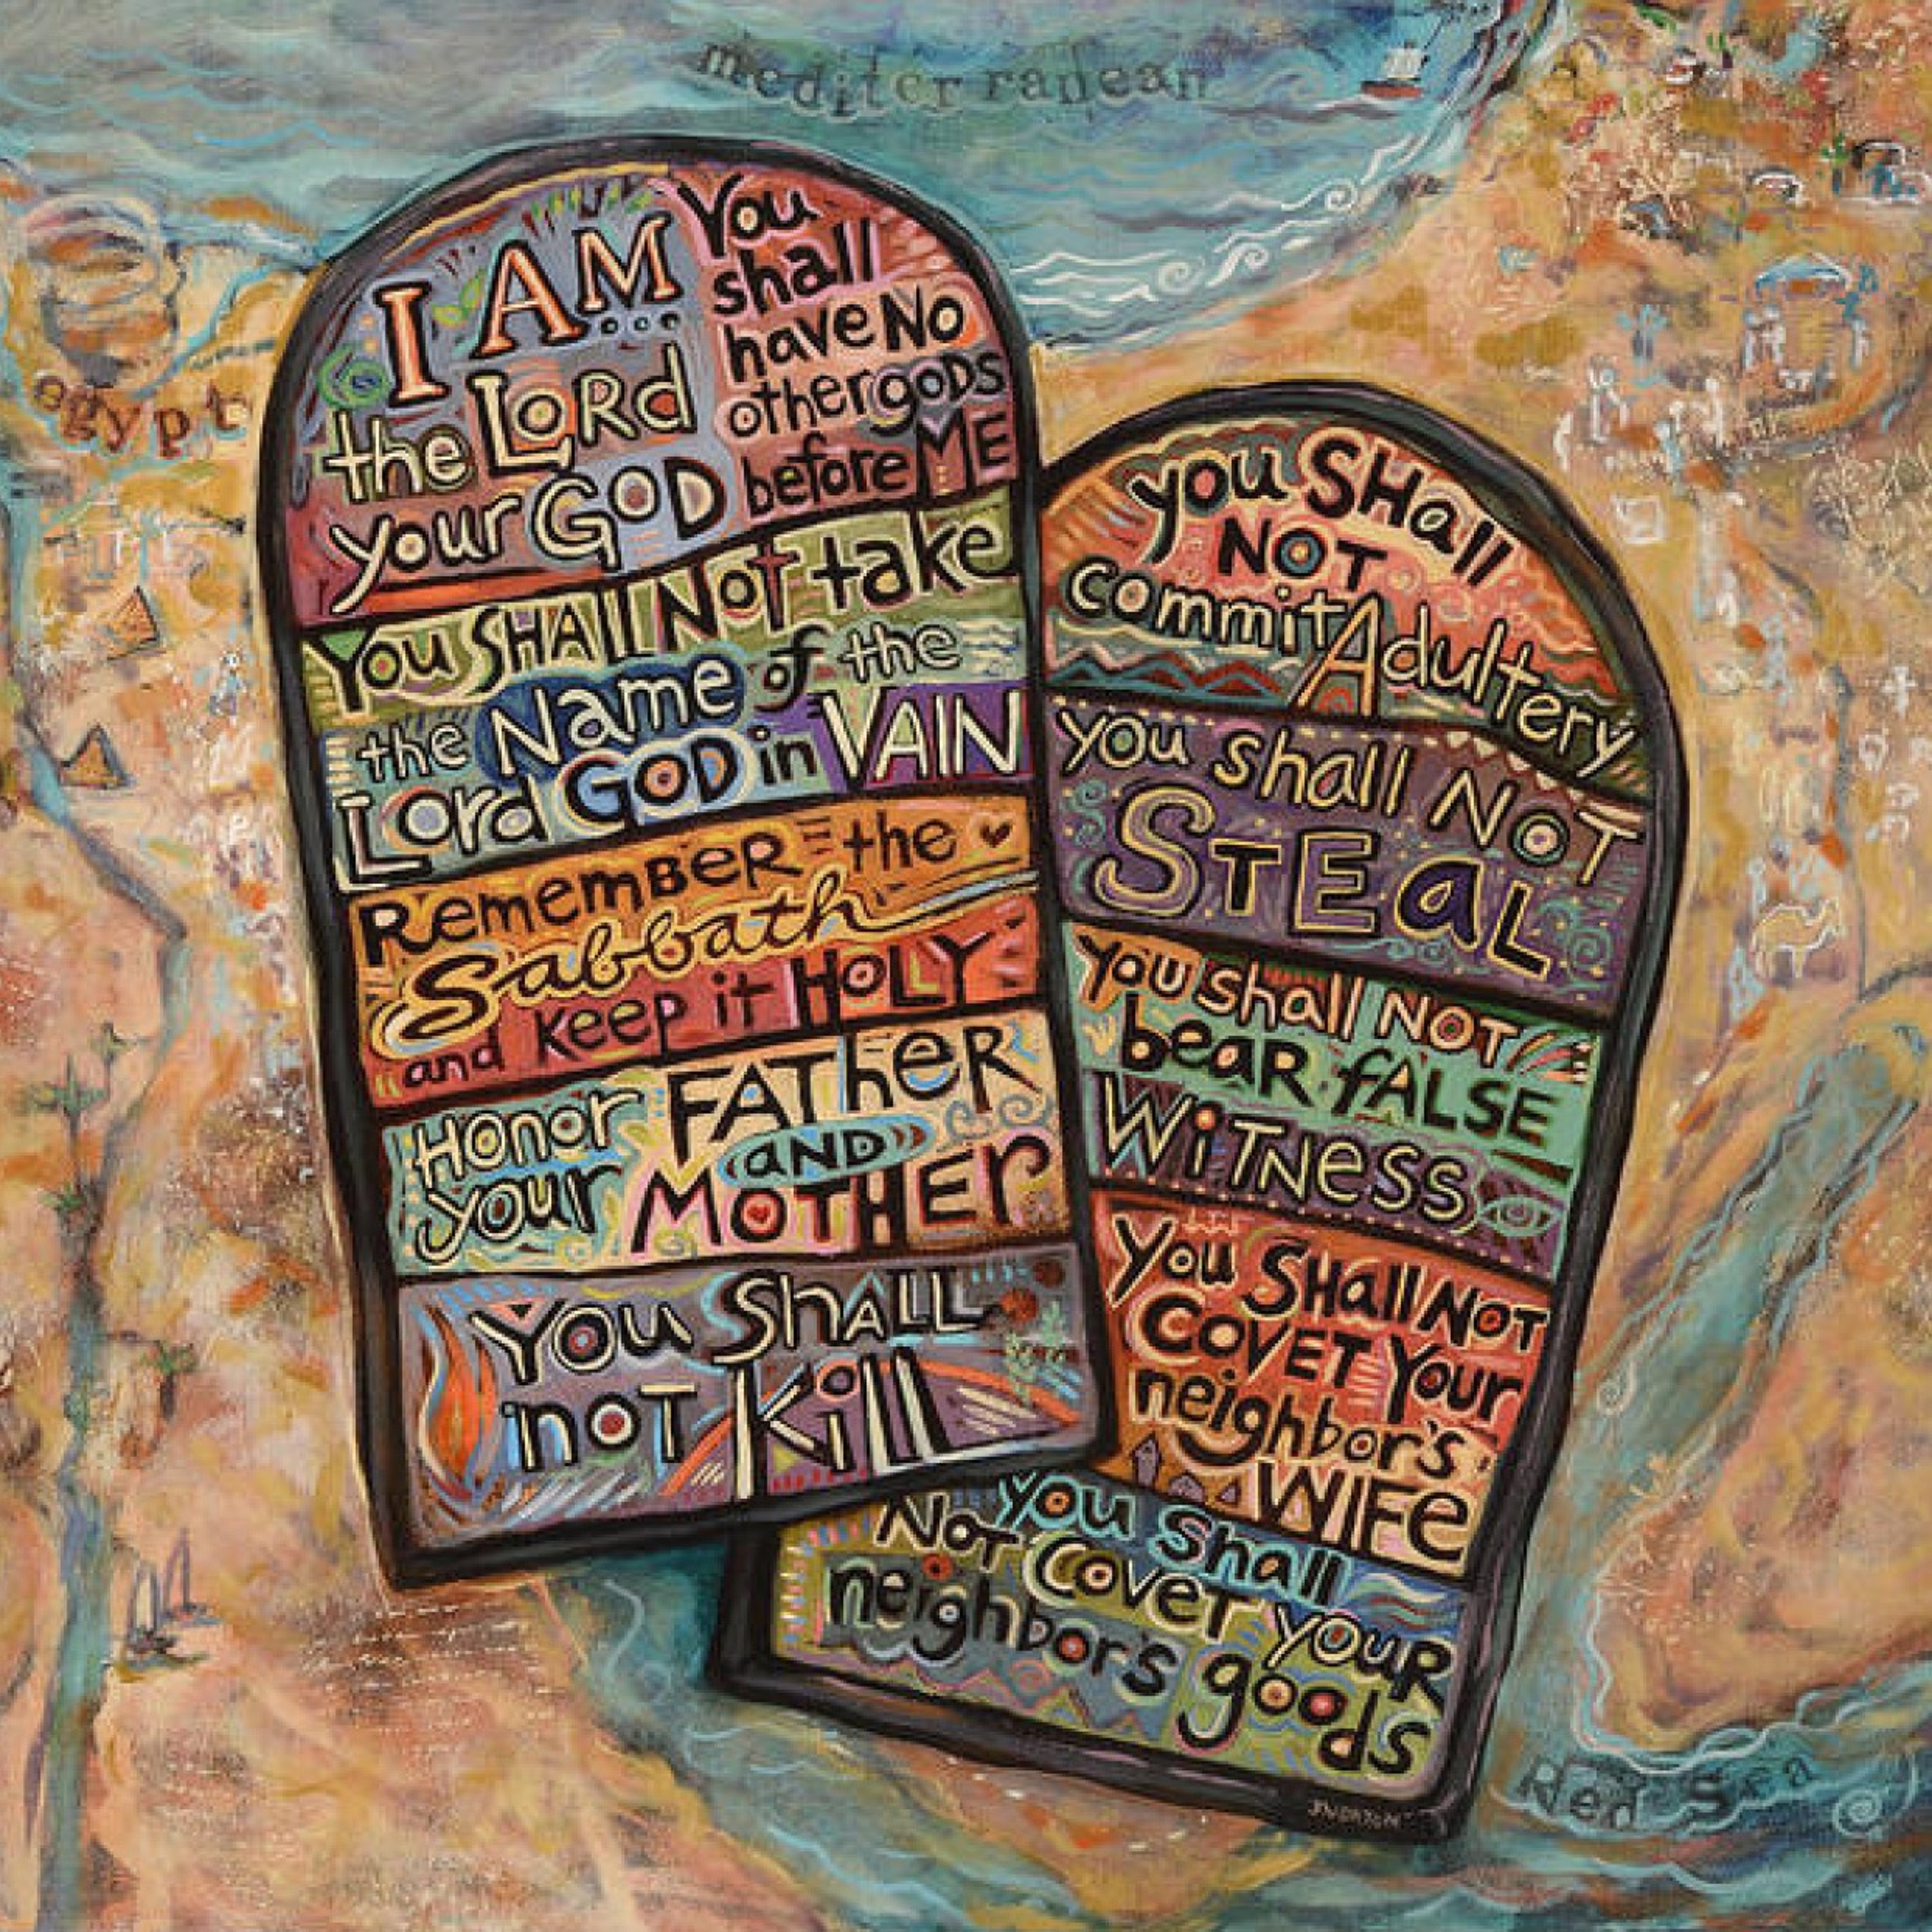 mediterranean
egypt
I AM...
the LORd
your GOD
You
shall
have No
other gods
before ME
You SHAll Not take
the Name of the
Lord GOD in VAIN
Remember the
Sabbath
and keep it HOLY
Honor your FATheR
AND
MOTHEr
You ShALL
noT Kill
you SHall
NOT
commit Adultery
you shall NOT
STEaL
you shall NOT
beaR fALSE
WiTNess
You SHall NOT
COVET Your
neighbor's
WIFe
you shall
Not Covet youR
neighbor's goods
JNORTON
Red Sea